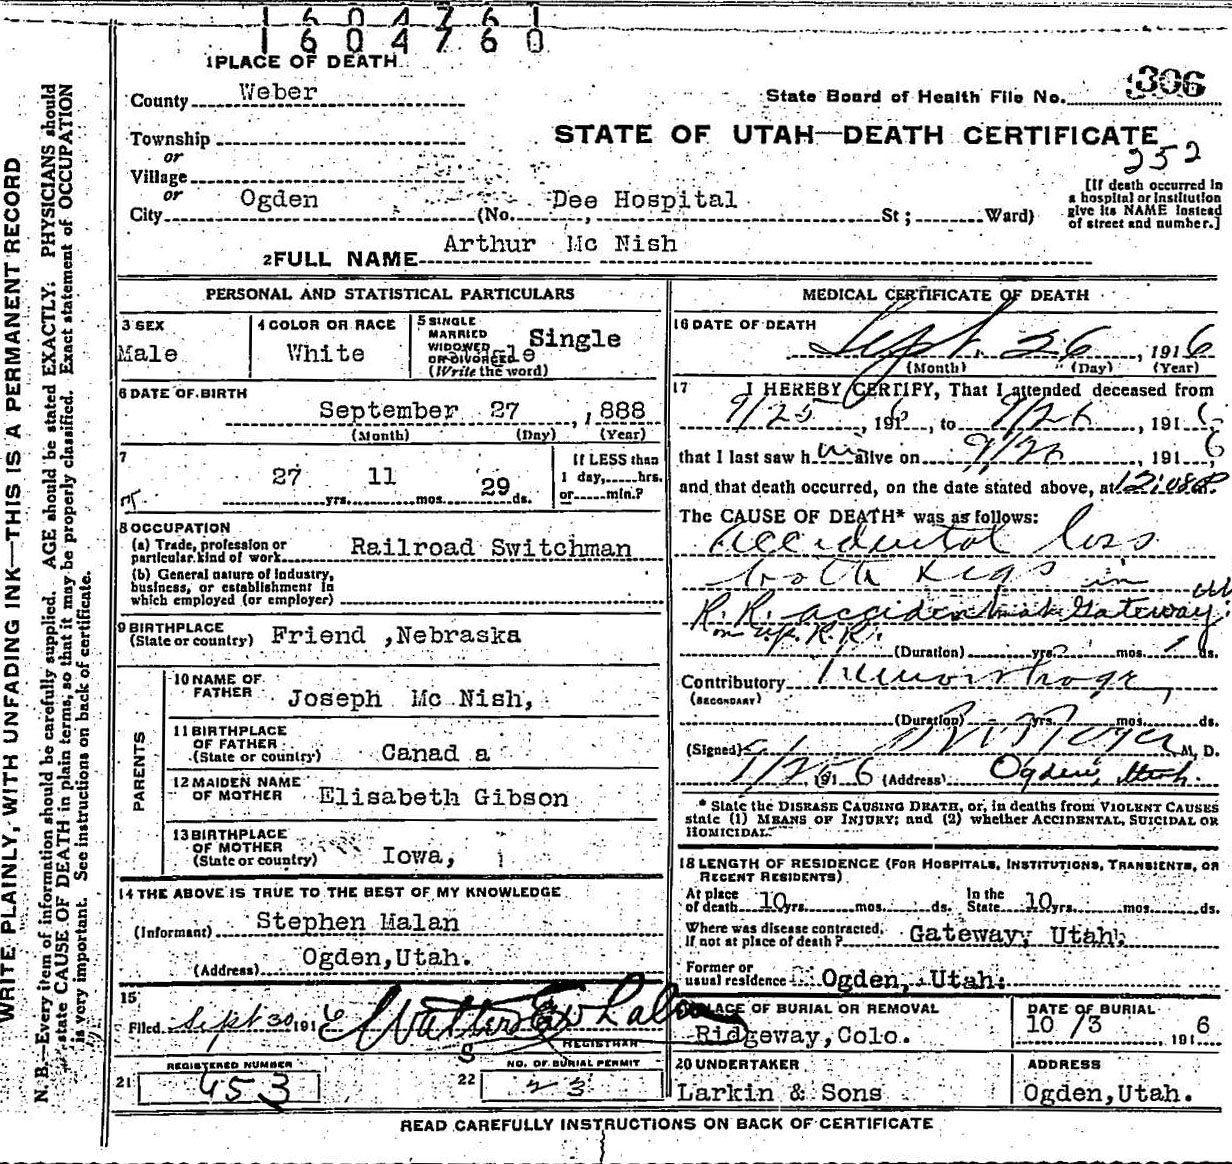 1604761
1604760
1 PLACE OF DEATH
County Weber
State Board of Health File No. 306
Township
STATE OF UTAH—DEATH CERTIFICATE
or
252
Village
or
City Ogden (No. Dee Hospital St; Ward)
[If death occurred in a hospital or institution give its NAME instead of street and number.]
2 FULL NAME Arthur Mc Nish
PERSONAL AND STATISTICAL PARTICULARS
3 SEX
Male
4 COLOR OR RACE
White
5 SINGLE
MARRIED
WIDOWED
OR DIVORCED
(Write the word)
Single
6 DATE OF BIRTH
September 27, 1888
(Month) (Day) (Year)
7
27 yrs. 11 mos. 29 ds.
If LESS than
1 day, hrs.
or min.?
8 OCCUPATION
(a) Trade, profession or
particular kind of work Railroad Switchman
(b) General nature of industry,
business, or establishment in
which employed (or employer)
9 BIRTHPLACE
(State or country) Friend ,Nebraska
PARENTS
10 NAME OF
FATHER Joseph Mc Nish,
11 BIRTHPLACE
OF FATHER
(State or country) Canad a
12 MAIDEN NAME
OF MOTHER Elisabeth Gibson
13 BIRTHPLACE
OF MOTHER
(State or country) Iowa,
14 THE ABOVE IS TRUE TO THE BEST OF MY KNOWLEDGE
(Informant) Stephen Malan
(Address) Ogden,Utah.
15
Filed Sept 30 1916
REGISTRAR
REGISTERED NUMBER
21 453
NO. OF BURIAL PERMIT
22 23
MEDICAL CERTIFICATE OF DEATH
16 DATE OF DEATH
Sept. 26, 1916
(Month) (Day) (Year)
17 I HEREBY CERTIFY, That I attended deceased from
9/25, 1916, to 9/26, 1916,
that I last saw him alive on 9/26, 1916,
and that death occurred, on the date stated above, at 12:08 P m.
The CAUSE OF DEATH* was as follows:
Accidental loss
both legs in
R.R. accident at Gateway
on U.P. R.R.
(Duration) yrs. mos. 1 ds.
Contributory Hemorrhage,
(SECONDARY)
(Duration) yrs. mos. ds.
(Signed) M. D.
1916 (Address) Ogden, Utah.
* State the DISEASE CAUSING DEATH, or, in deaths from VIOLENT CAUSES
state (1) MEANS OF INJURY; and (2) whether ACCIDENTAL, SUICIDAL OR
HOMICIDAL.
18 LENGTH OF RESIDENCE (FOR HOSPITALS, INSTITUTIONS, TRANSIENTS, OR
RECENT RESIDENTS)
At place
of death 10 yrs. mos. ds.
In the
State 10 yrs. mos. ds.
Where was disease contracted,
If not at place of death? Gateway, Utah.
Former or
usual residence Ogden, Utah.
PLACE OF BURIAL OR REMOVAL
Ridgeway,Colo.
DATE OF BURIAL
10 /3 1916
20 UNDERTAKER
Larkin & Sons
ADDRESS
Ogden,Utah.
READ CAREFULLY INSTRUCTIONS ON BACK OF CERTIFICATE
WRITE PLAINLY, WITH UNFADING INK—THIS IS A PERMANENT RECORD
N. B.—Every item of information should be carefully supplied. AGE should be stated EXACTLY. PHYSICIANS should
state CAUSE OF DEATH in plain terms, so that it may be properly classified. Exact statement of OCCUPATION
is very important. See instructions on back of certificate.